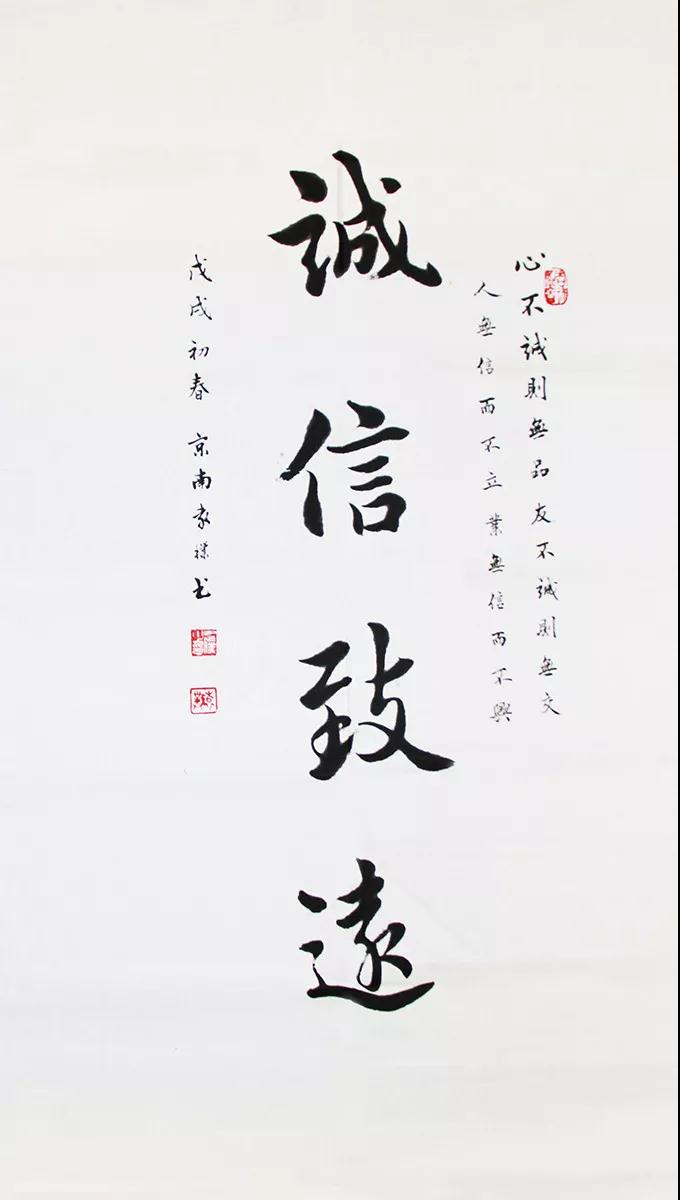 心不誠則無品友不誠則無交
人無信而不立業無信而不興
誠信致遠
戊戌初春 京南家禄书